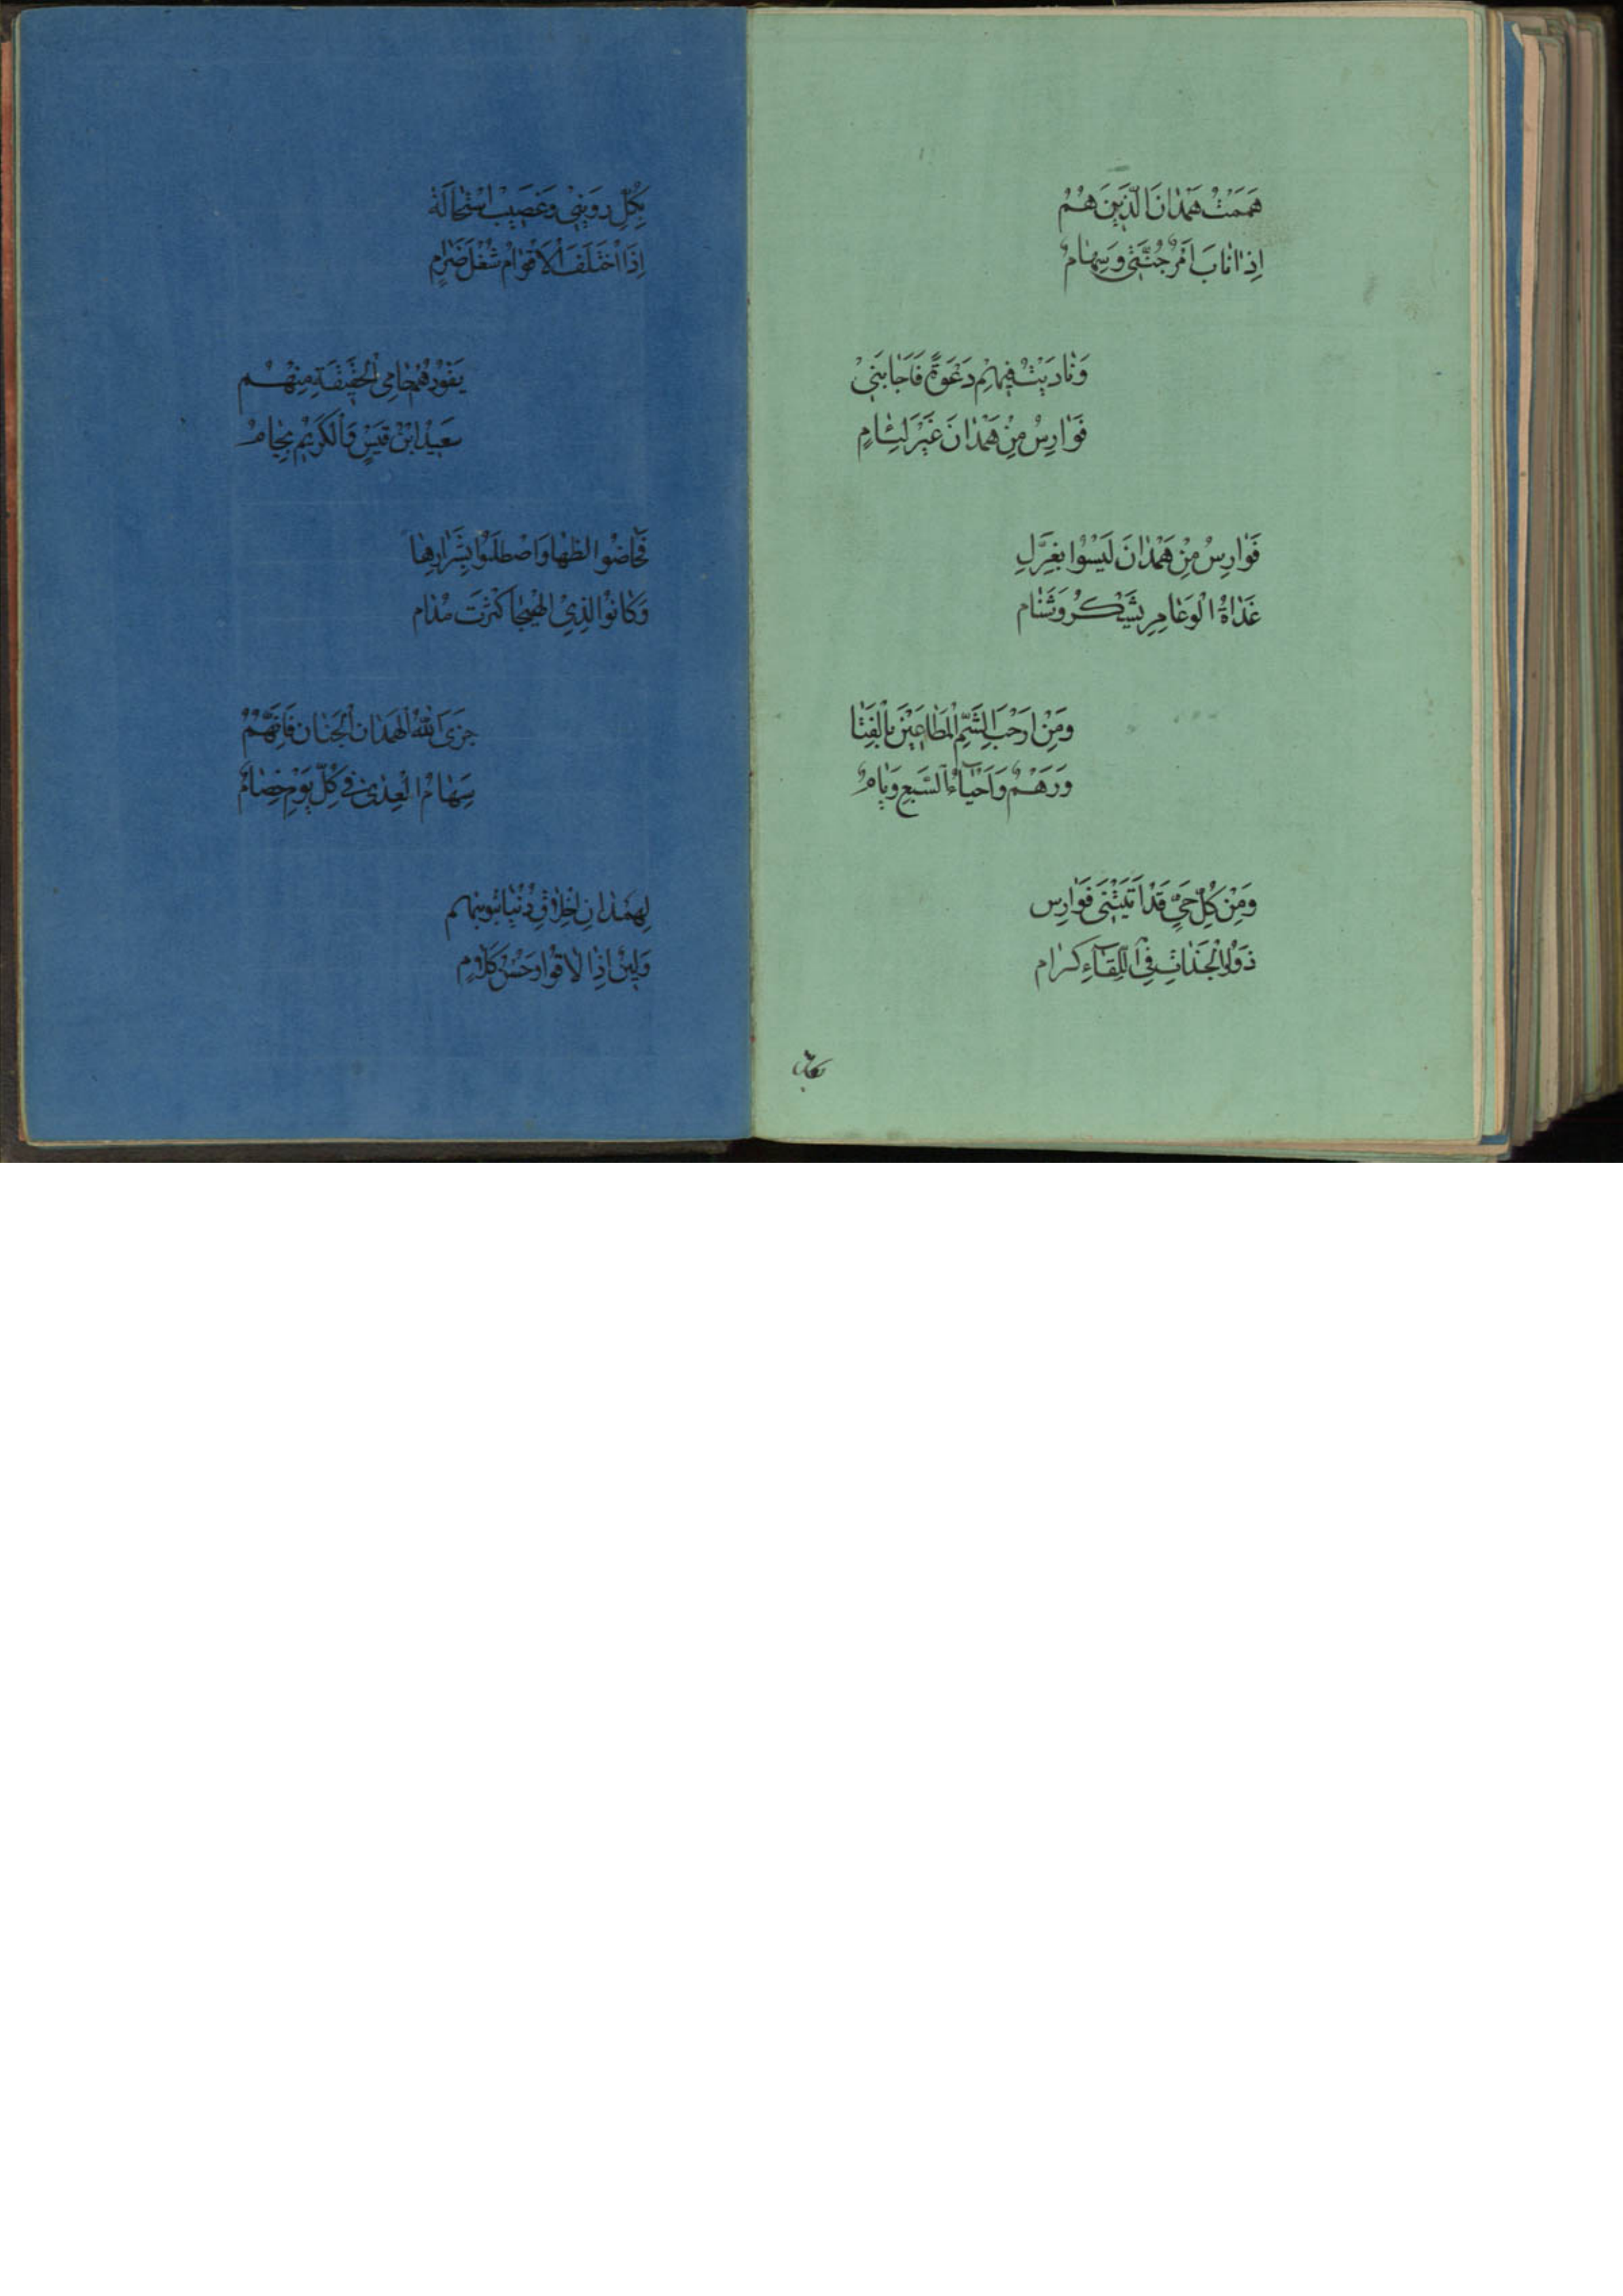 هَمَمَتْ هَمْدَانَ الَّذِينَ هُمُ
اِذَا نَابَ اَمْرٌ جُنَّتِي وَسِهَامٌ
وَنَادَيْتُ فِيهِمْ دَعْوَةً فَاَجَابَنِيْ
فَوَارِسُ مِنْ هَمْدَانَ غَيْرَ لِئَامٍ
فَوَارِسُ مِنْ هَمْدَانَ لَيْسُوْا بِعُزَّلِ
غَدَاةُ الْوَغَا مِنْ يَشْكُرُ وَشَنَام
وَمِنْ اَرْحَبَ الشَّمِّ الْمَطَاعِيْنَ بِالْقَنَا
وَرَهْمٌ وَاَحْيَاءُ السَّبِعِ وَيَامٌ
وَمِنْ كُلِّ حَيٍّ قَدْ اَتَيَتْنِي فَوَارِس
ذَوُوا لْجَدَاتِ فِي الْلِقَاءِ كِرَام
بكل
بِكُلِّ رَدَيْنِي وَعَضِيبْ اسْتِحَالَةُ
اِذَا اخْتَلَفَ الْاَقْوَامُ شُغْلَ ضَرَامٍ
يَقُوْدُهُمْ حَامِي الْحَقِيقَةِ مِنْهُمْ
سَعِيدُ ابْنُ قَيْسٍ وَالْكَرِيْمُ يُحَامُ
فَخَاضُوا لَظَهَا وَاصْطَلَوْا بِشَرَارِهَا
وَكَانُوْا لَذِي الْهَيْجَا كَثَرَتْ مُدَام
جَزَى اللّٰهُ الْهَمْدَانَ الْجِنَانَ فَاِنَّهُمْ
سِهَامُ الْعِدٰى فِي كُلِّ يَوْمٍ خِضَامُ
لِهَمْدَانِ اَخْلَاقٍ
وَلِيْنٌ اِذَا لَاقَوْا وَحُسْنُ كَلَامٍ